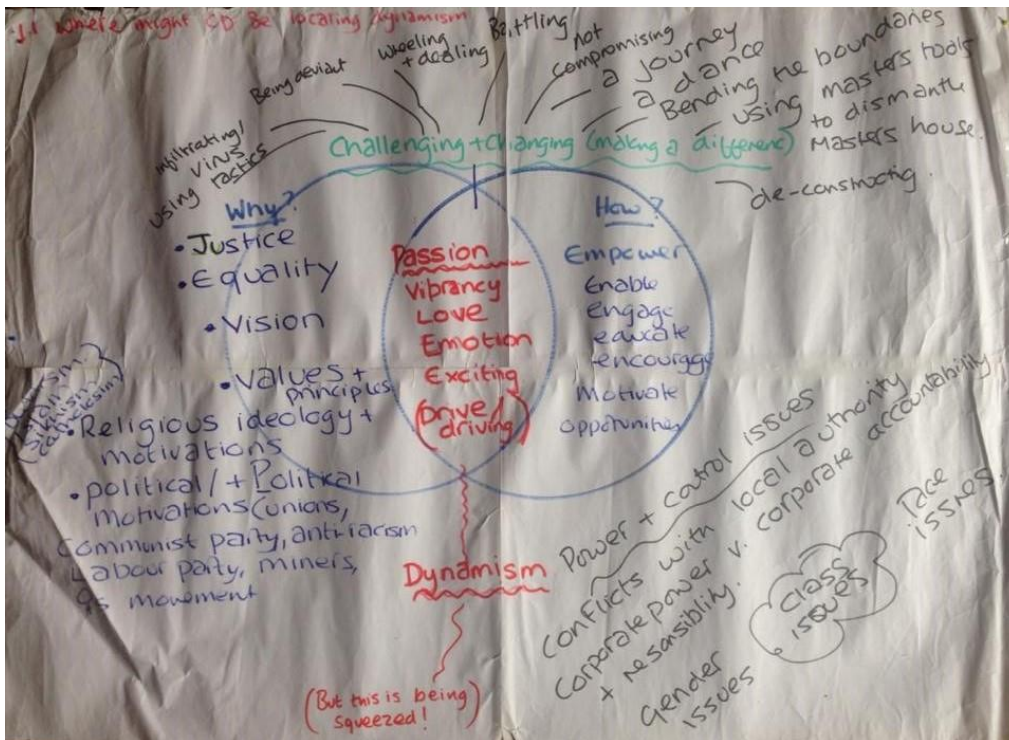 1.1 Where might CD Be locating dynamism
Being deviant
Wheeling
+ dealing
Battling
Not
compromising
a journey
a dance
Bending the boundaries
using masters tools
to dismantle
Masters house.
de-constructig.
infiltrating/
using virus
tactics
Challenging + Changing (making a differenc)
Why?
• Justice
• Equality
• Vision
• Values +
principles
• Religious ideology +
motivations
• political / + Political
motivations (unions,
Communist party, anti-racism
Labour party, miners,
movement
Passion
Vibrancy
Love
Emotion
Exciting
(Drive/
driving)
How?
Empower
Enable
Engage
educate
encourage
Motivate
opportunities
Dynamism
(But this is being
squeezed!)
Power + control issues
Conflicts with local authority
Corporate power v. corporate accountability
+ resonsiblity.
Gender
issues
Class
issues
Race
issues.